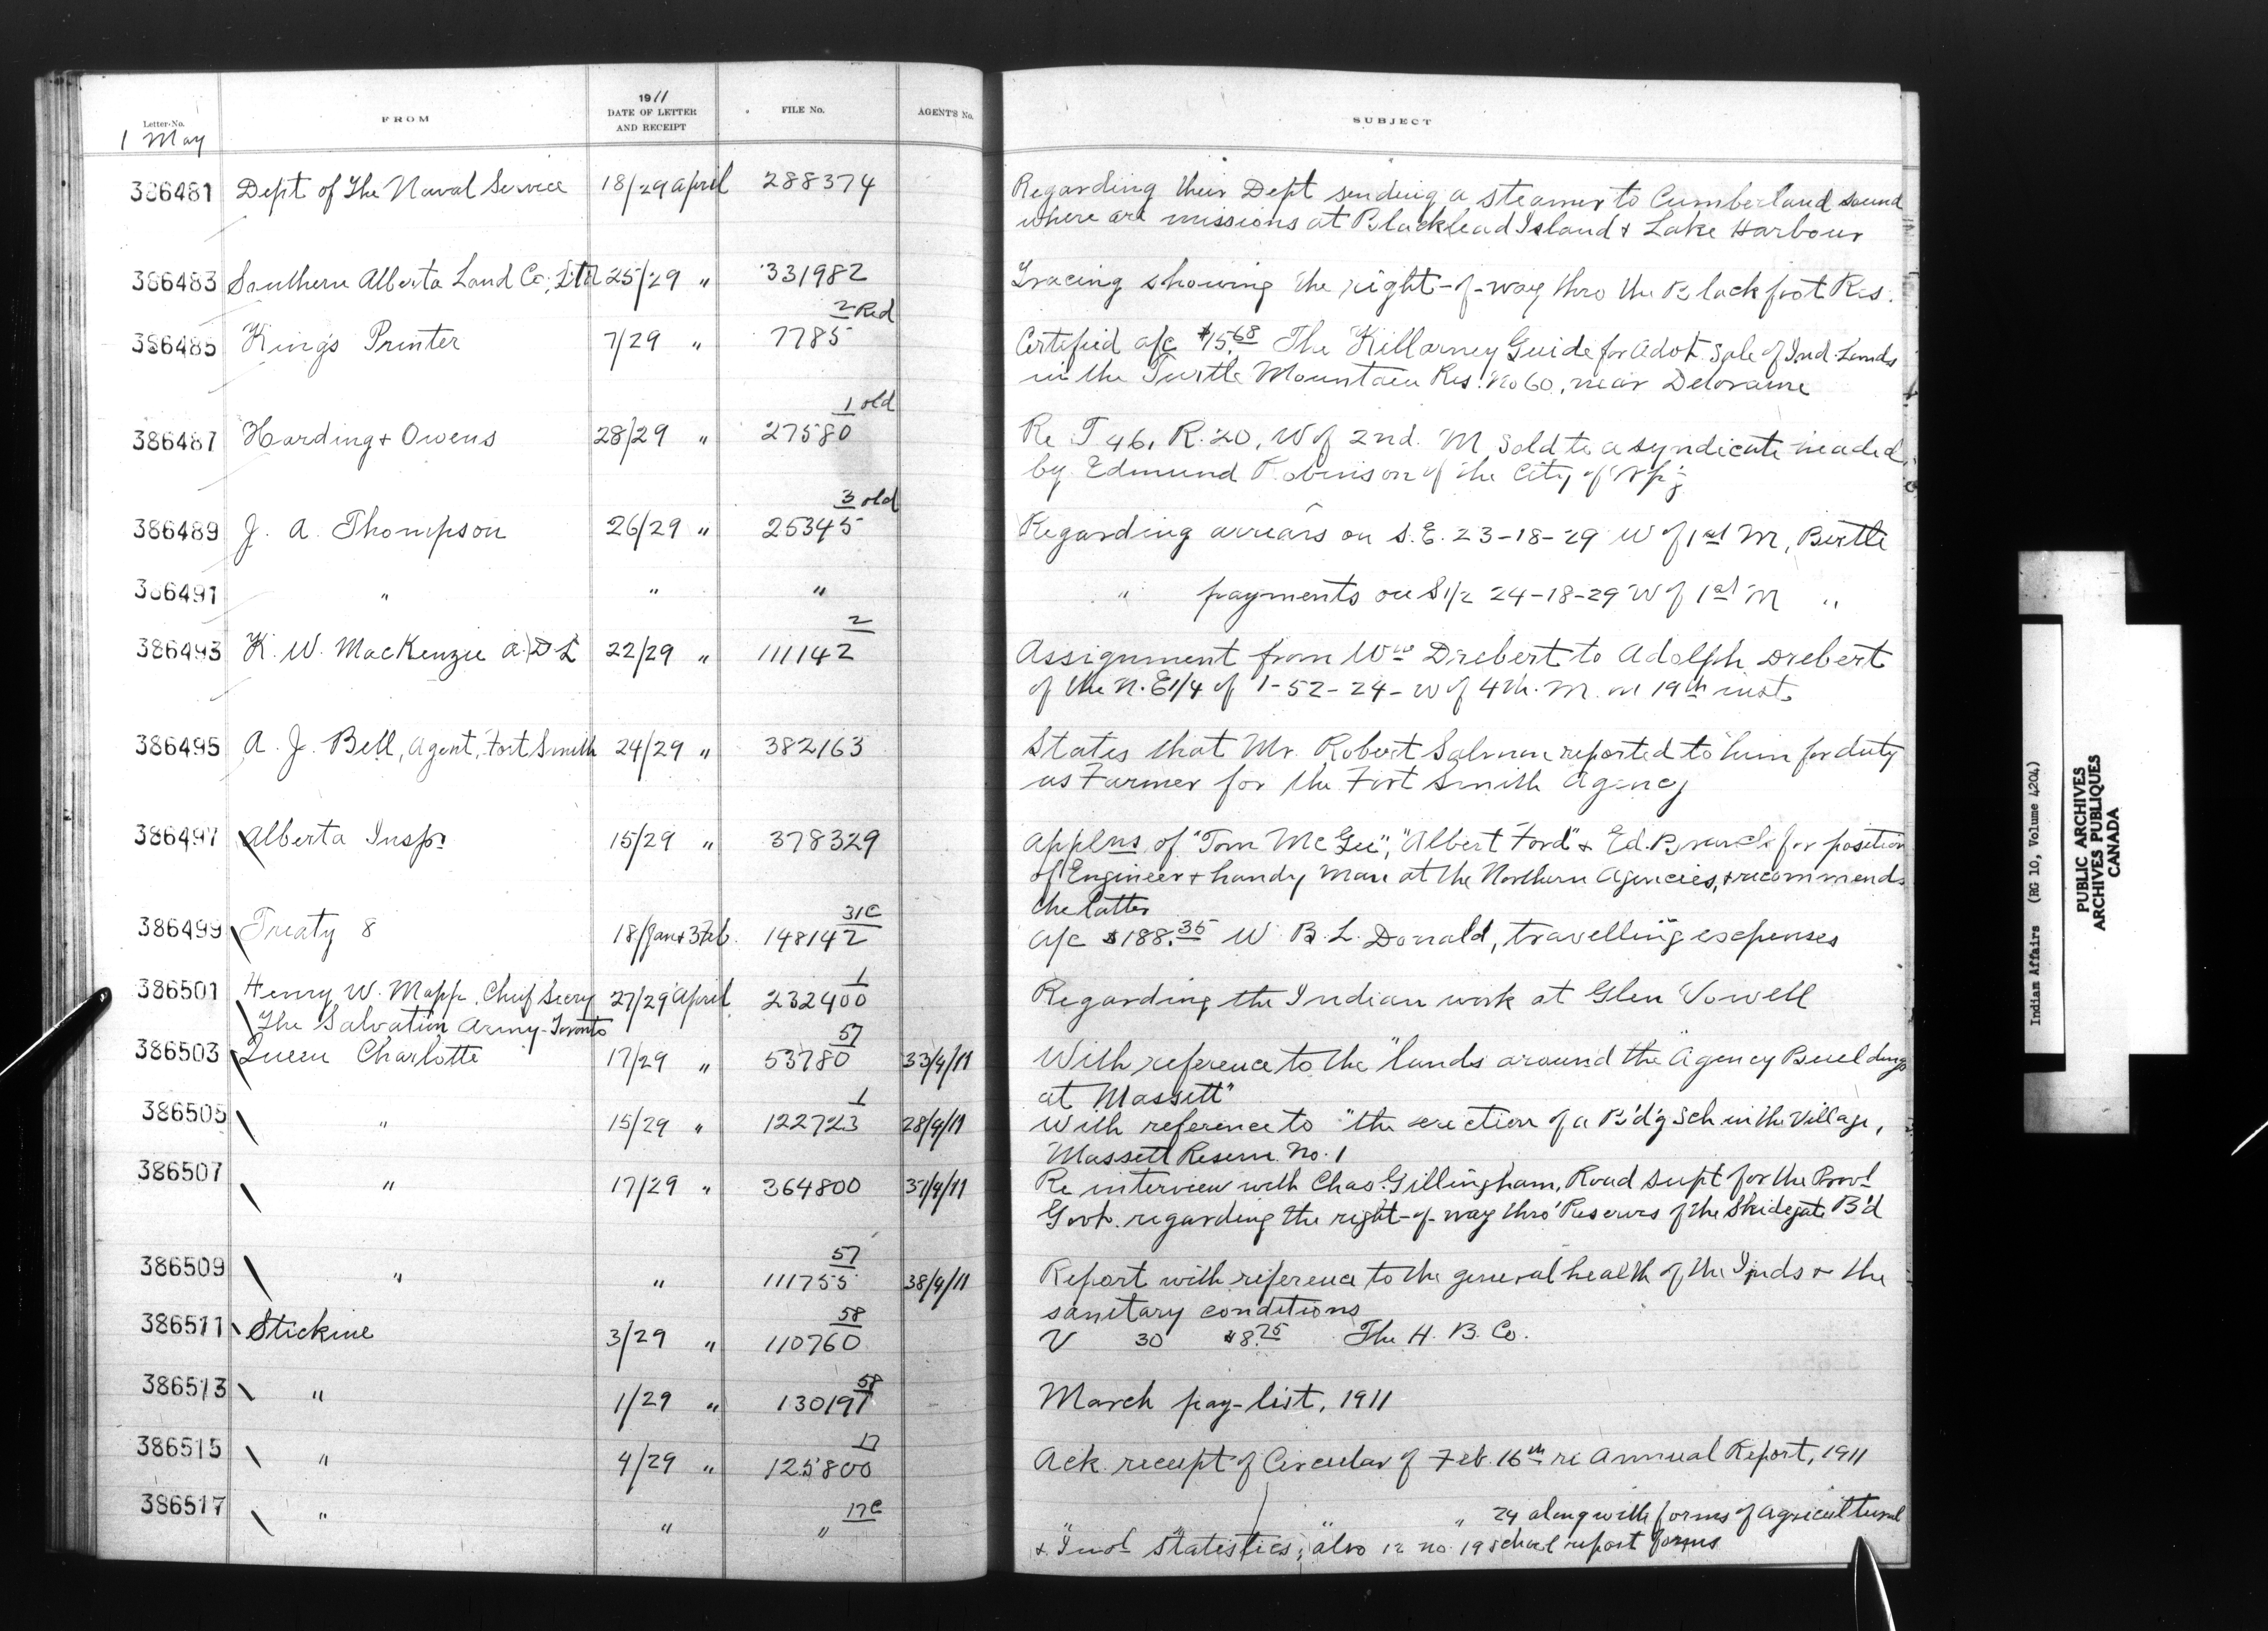 Letter-No. FROM 1911 DATE OF LETTER AND RECEIPT FILE No. AGENT'S No. SUBJECT
1 May
386481 Dept of The Naval Service 18/29 April 288374 Regarding their Dept sending a steamer to Cumberland sound
where are missions at Blacklead Island & Lake Harbour
386483 Southern Alberta Land Co., Ltd 25/29 " 331982 Tracing showing the right-of-way thro the Blackfoot Res.
2 Red
386485 King's Printer 7/29 " 7785 Certified a/c $15.68 The Killarney Guide for Advt. Sale of Ind. Lands
in the Turtle Mountain Res. No 60, near Deloraine
1 old
386487 Harding & Owens 28/29 " 27580 Re T 46, R. 20, W of 2nd. M sold to a syndicate headed
by Edmund Robinson of the City of Wpg
3 old
386489 J. A. Thompson 26/29 " 25345 Regarding arrears on S.E. 23-18-29 W of 1st M, Birtle
386491 " " " " payments on S1/2 24-18-29 W of 1st M "
2
386493 K. W. MacKenzie A.D.L 22/29 " 111142 Assignment from Wm Drebert to Adolph Drebert
of the N.E1/4 of 1-52-24-W of 4th. M. on 19th inst.
386495 A. J. Bell, Agent, Fort Smith 24/29 " 382163 States that Mr. Robert Salmon reported to him for duty
as Farmer for the Fort Smith Agency
386497 Alberta Insp. 15/29 " 378329 Applns of "Tom McGee", "Albert Ford" & Ed. Branch for position
of Engineer & handy man at the Northern Agencies, & recommends
the latter
31C
386499 Treaty 8 18/Jan & 3 Feb. 148142 A/c $188.35 W. B. L. Donald, travelling expenses
1
386501 Henry W. Mapp, Chief Secry 27/29 April 232400 Regarding the Indian work at Glen Vowell
The Salvation Army-Toronto
57
386503 Queen Charlotte 17/29 " 53780 33/4/11 With reference to the "lands around the Agency Buildings
at Massett"
1
386505 " 15/29 " 122723 28/4/11 With reference to "the erection of a B'd'g Sch in the Village,
Massett Reserve No. 1
386507 " 17/29 " 364800 37/4/11 Re interview with Chas. Gillingham, Road supt for the Provl
Govt. regarding the right-of-way thro' Reserves of the Skidegate B'd
57
386509 " " 111755 38/4/11 Report with reference to the general health of the Inds & the
sanitary conditions
58
386511 Stickine 3/29 " 110760 V 30 $8.75 The H. B. Co.
58
386513 " 1/29 " 130197 March pay-list, 1911
17
386515 " 4/29 " 125800 Ack receipt of Circular of Feb. 16th re Annual Report, 1911
17C
386517 " " " " " " " 24 along with forms of Agricultural
& Indl Statistics; also 12 no. 19 school report forms
Indian Affairs (RG 10, Volume 4204)
PUBLIC ARCHIVES
ARCHIVES PUBLIQUES
CANADA